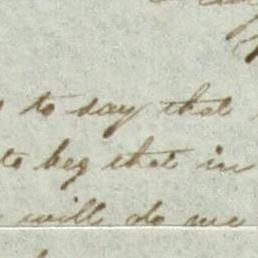 to say that
to beg that in
will do me